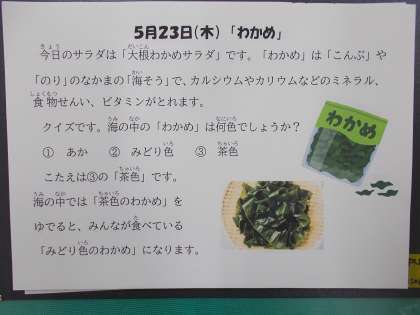 5月23日(木)「わかめ」
今日のサラダは「大根わかめサラダ」です。「わかめ」は「こんぶ」や
「のり」のなかまの「海そう」で、カルシウムやカリウムなどのミネラル、
食物せんい、ビタミンがとれます。
クイズです。海の中の「わかめ」は何色でしょうか?
① あか ② みどり色 ③ 茶色
こたえは③の「茶色」です。
海の中では「茶色のわかめ」を
ゆでると、みんなが食べている
「みどり色のわかめ」になります。
わかめ